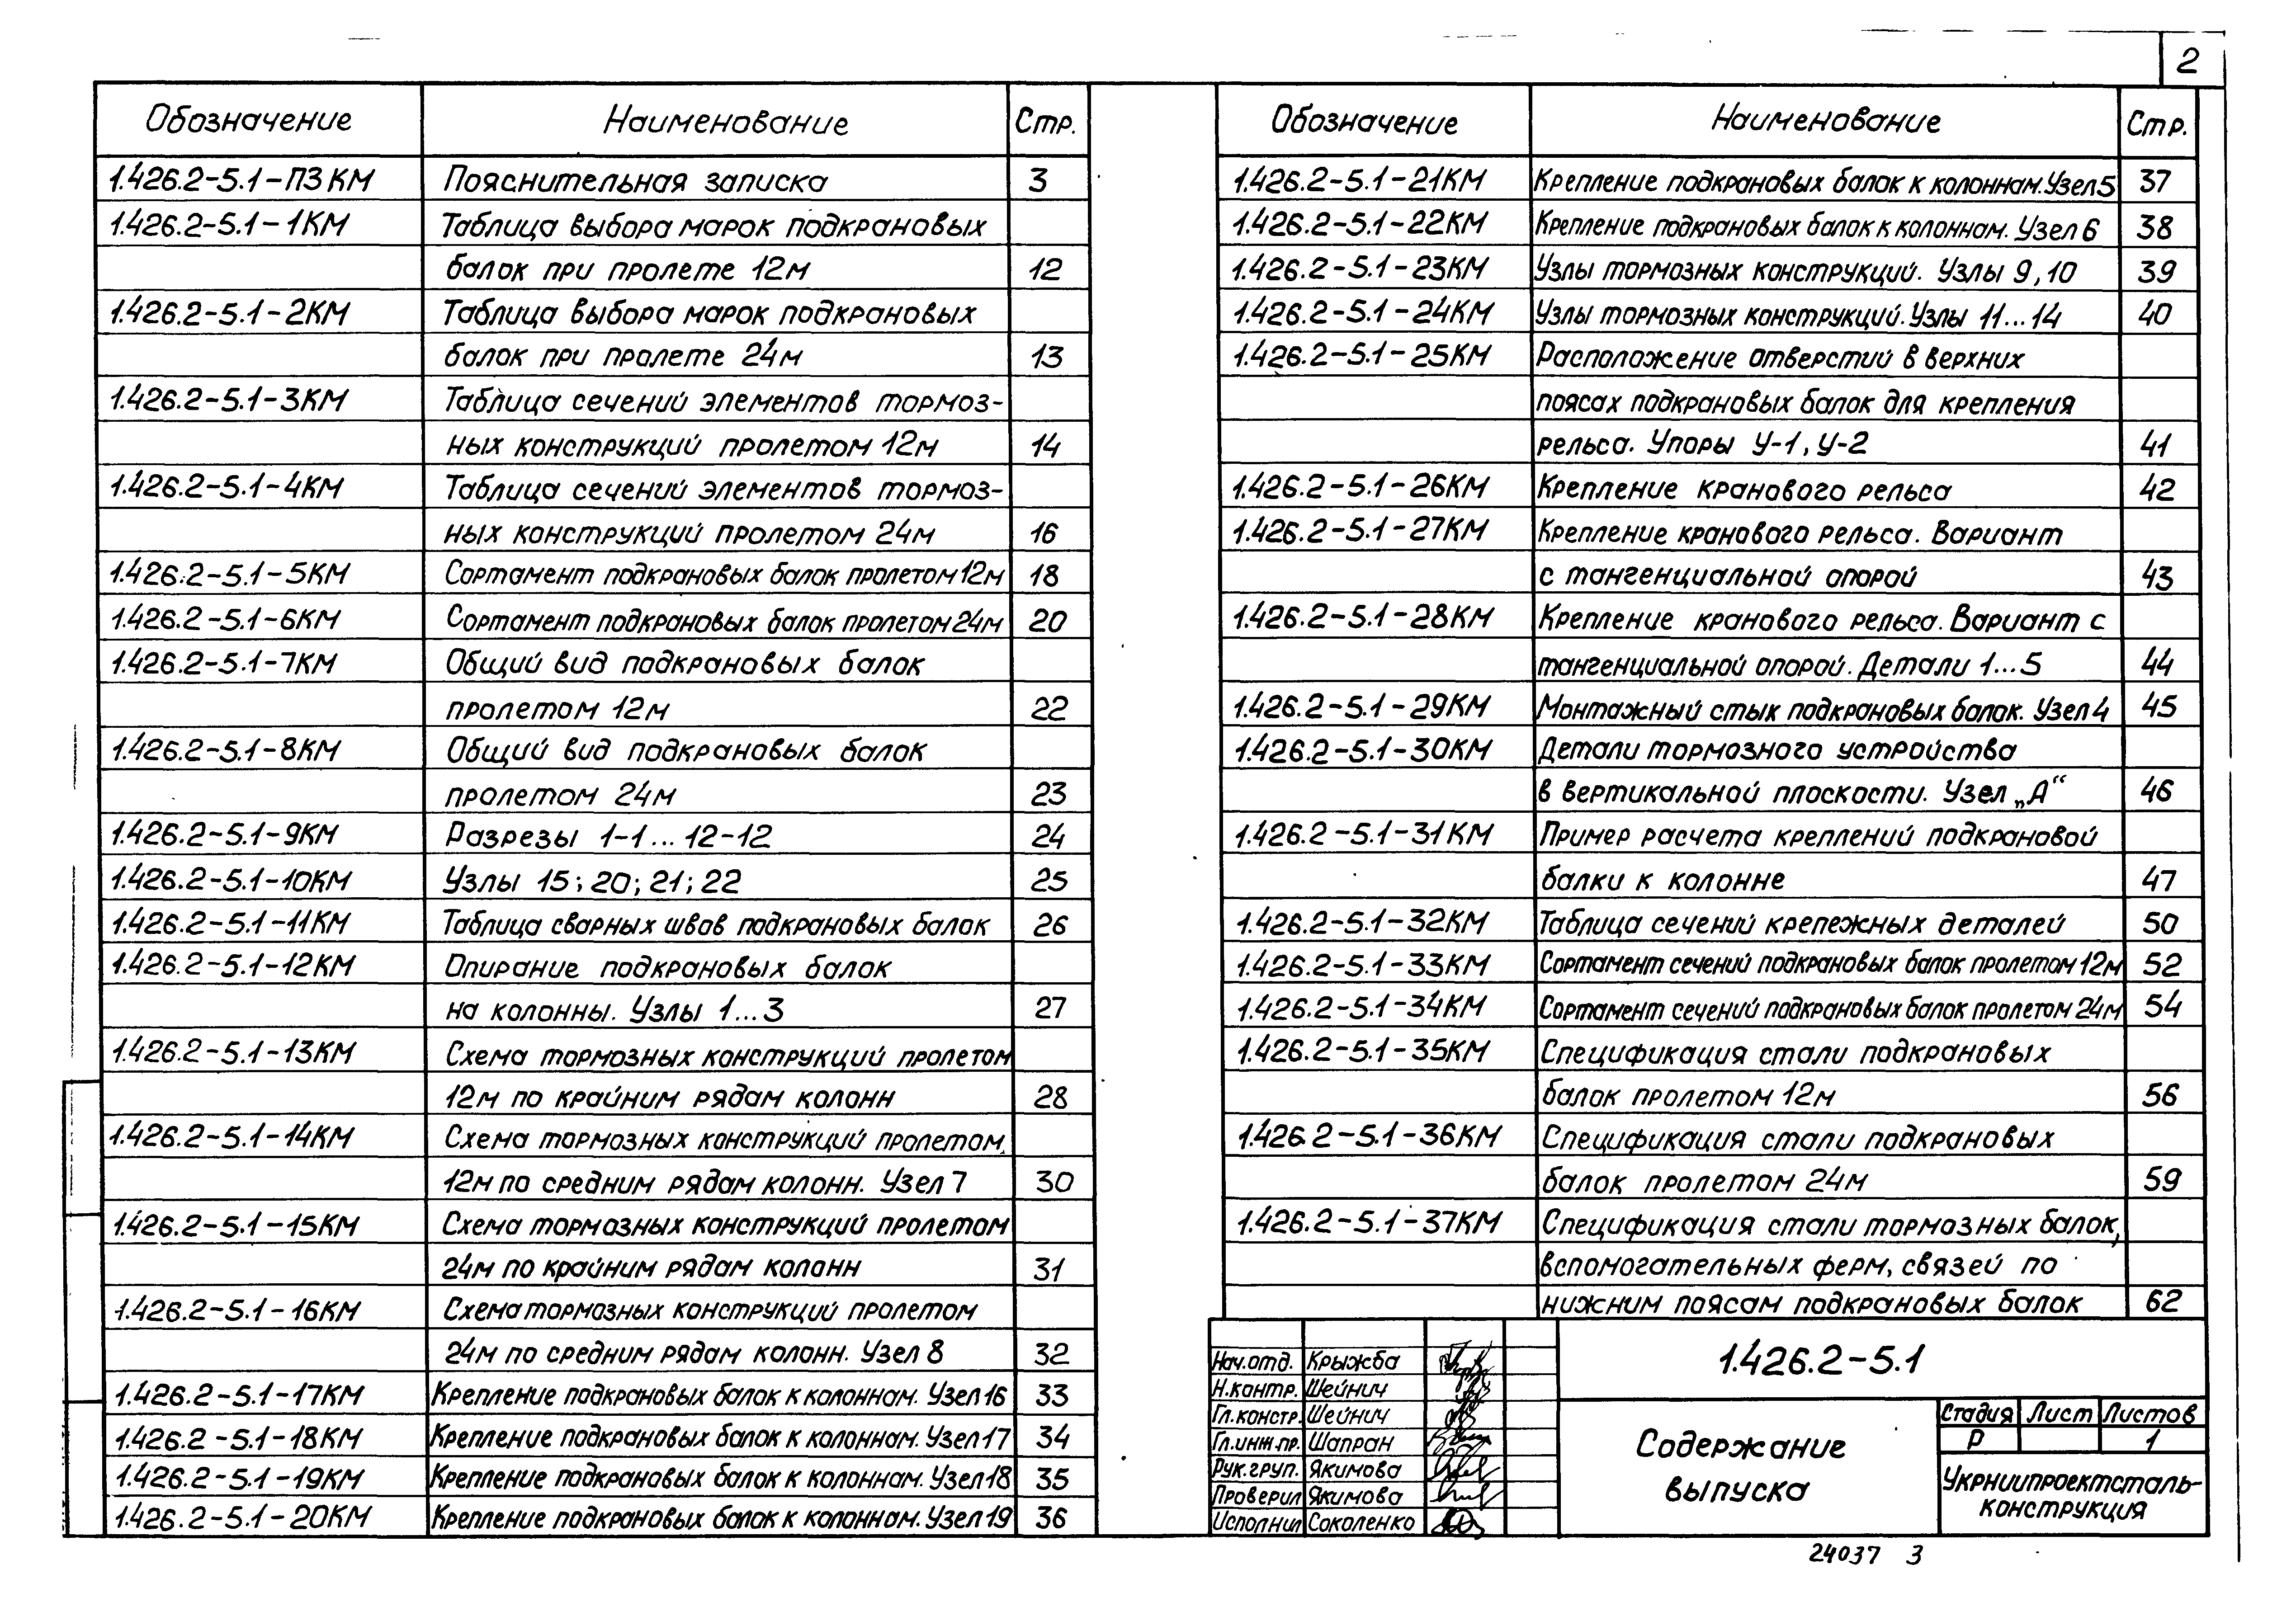 2
Обозначение Наименование Стр.
1.426.2-5.1-ПЗ КМ Пояснительная записка 3
1.426.2-5.1-1КМ Таблица выбора марок подкрановых
балок при пролете 12м 12
1.426.2-5.1-2КМ Таблица выбора марок подкрановых
балок при пролете 24м 13
1.426.2-5.1-3КМ Таблица сечений элементов тормоз-
ных конструкций пролетом 12м 14
1.426.2-5.1-4КМ Таблица сечений элементов тормоз-
ных конструкций пролетом 24м 16
1.426.2-5.1-5КМ Сортамент подкрановых балок пролетом 12м 18
1.426.2-5.1-6КМ Сортамент подкрановых балок пролетом 24м 20
1.426.2-5.1-7КМ Общий вид подкрановых балок
пролетом 12м 22
1.426.2-5.1-8КМ Общий вид подкрановых балок
пролетом 24м 23
1.426.2-5.1-9КМ Разрезы 1-1...12-12 24
1.426.2-5.1-10КМ Узлы 15; 20; 21; 22 25
1.426.2-5.1-11КМ Таблица сварных швов подкрановых балок 26
1.426.2-5.1-12КМ Опирание подкрановых балок
на колонны. Узлы 1...3 27
1.426.2-5.1-13КМ Схема тормозных конструкций пролетом
12м по крайним рядам колонн 28
1.426.2-5.1-14КМ Схема тормозных конструкций пролетом
12м по средним рядам колонн. Узел 7 30
1.426.2-5.1-15КМ Схема тормозных конструкций пролетом
24м по крайним рядам колонн 31
1.426.2-5.1-16КМ Схема тормозных конструкций пролетом
24м по средним рядам колонн. Узел 8 32
1.426.2-5.1-17КМ Крепление подкрановых балок к колоннам. Узел 16 33
1.426.2-5.1-18КМ Крепление подкрановых балок к колоннам. Узел 17 34
1.426.2-5.1-19КМ Крепление подкрановых балок к колоннам. Узел 18 35
1.426.2-5.1-20КМ Крепление подкрановых балок к колоннам. Узел 19 36
Обозначение Наименование Стр.
1.426.2-5.1-21КМ Крепление подкрановых балок к колоннам. Узел 5 37
1.426.2-5.1-22КМ Крепление подкрановых балок к колоннам. Узел 6 38
1.426.2-5.1-23КМ Узлы тормозных конструкций. Узлы 9, 10 39
1.426.2-5.1-24КМ Узлы тормозных конструкций. Узлы 11...14 40
1.426.2-5.1-25КМ Расположение отверстий в верхних
поясах подкрановых балок для крепления
рельса. Упоры У-1, У-2 41
1.426.2-5.1-26КМ Крепление кранового рельса 42
1.426.2-5.1-27КМ Крепление кранового рельса. Вариант
с тангенциальной опорой 43
1.426.2-5.1-28КМ Крепление кранового рельса. Вариант с
тангенциальной опорой. Детали 1...5 44
1.426.2-5.1-29КМ Монтажный стык подкрановых балок. Узел 4 45
1.426.2-5.1-30КМ Детали тормозного устройства
в вертикальной плоскости. Узел „А“ 46
1.426.2-5.1-31КМ Пример расчета креплений подкрановой
балки к колонне 47
1.426.2-5.1-32КМ Таблица сечений крепежных деталей 50
1.426.2-5.1-33КМ Сортамент сечений подкрановых балок пролетом 12м 52
1.426.2-5.1-34КМ Сортамент сечений подкрановых балок пролетом 24м 54
1.426.2-5.1-35КМ Спецификация стали подкрановых
балок пролетом 12м 56
1.426.2-5.1-36КМ Спецификация стали подкрановых
балок пролетом 24м 59
1.426.2-5.1-37КМ Спецификация стали тормозных балок,
вспомогательных ферм, связей по
нижним поясам подкрановых балок 62
Нач.отд. Крыжба
Н.контр. Шейнич
Гл.констр. Шейнич
Гл.инж.пр. Шапран
Рук.груп. Якимова
Проверил Якимова
Исполнил Соколенко
1.426.2-5.1
Содержание
выпуска
Стадия Лист Листов
Р 1
Укрниипроектсталь-
конструкция
24037 3